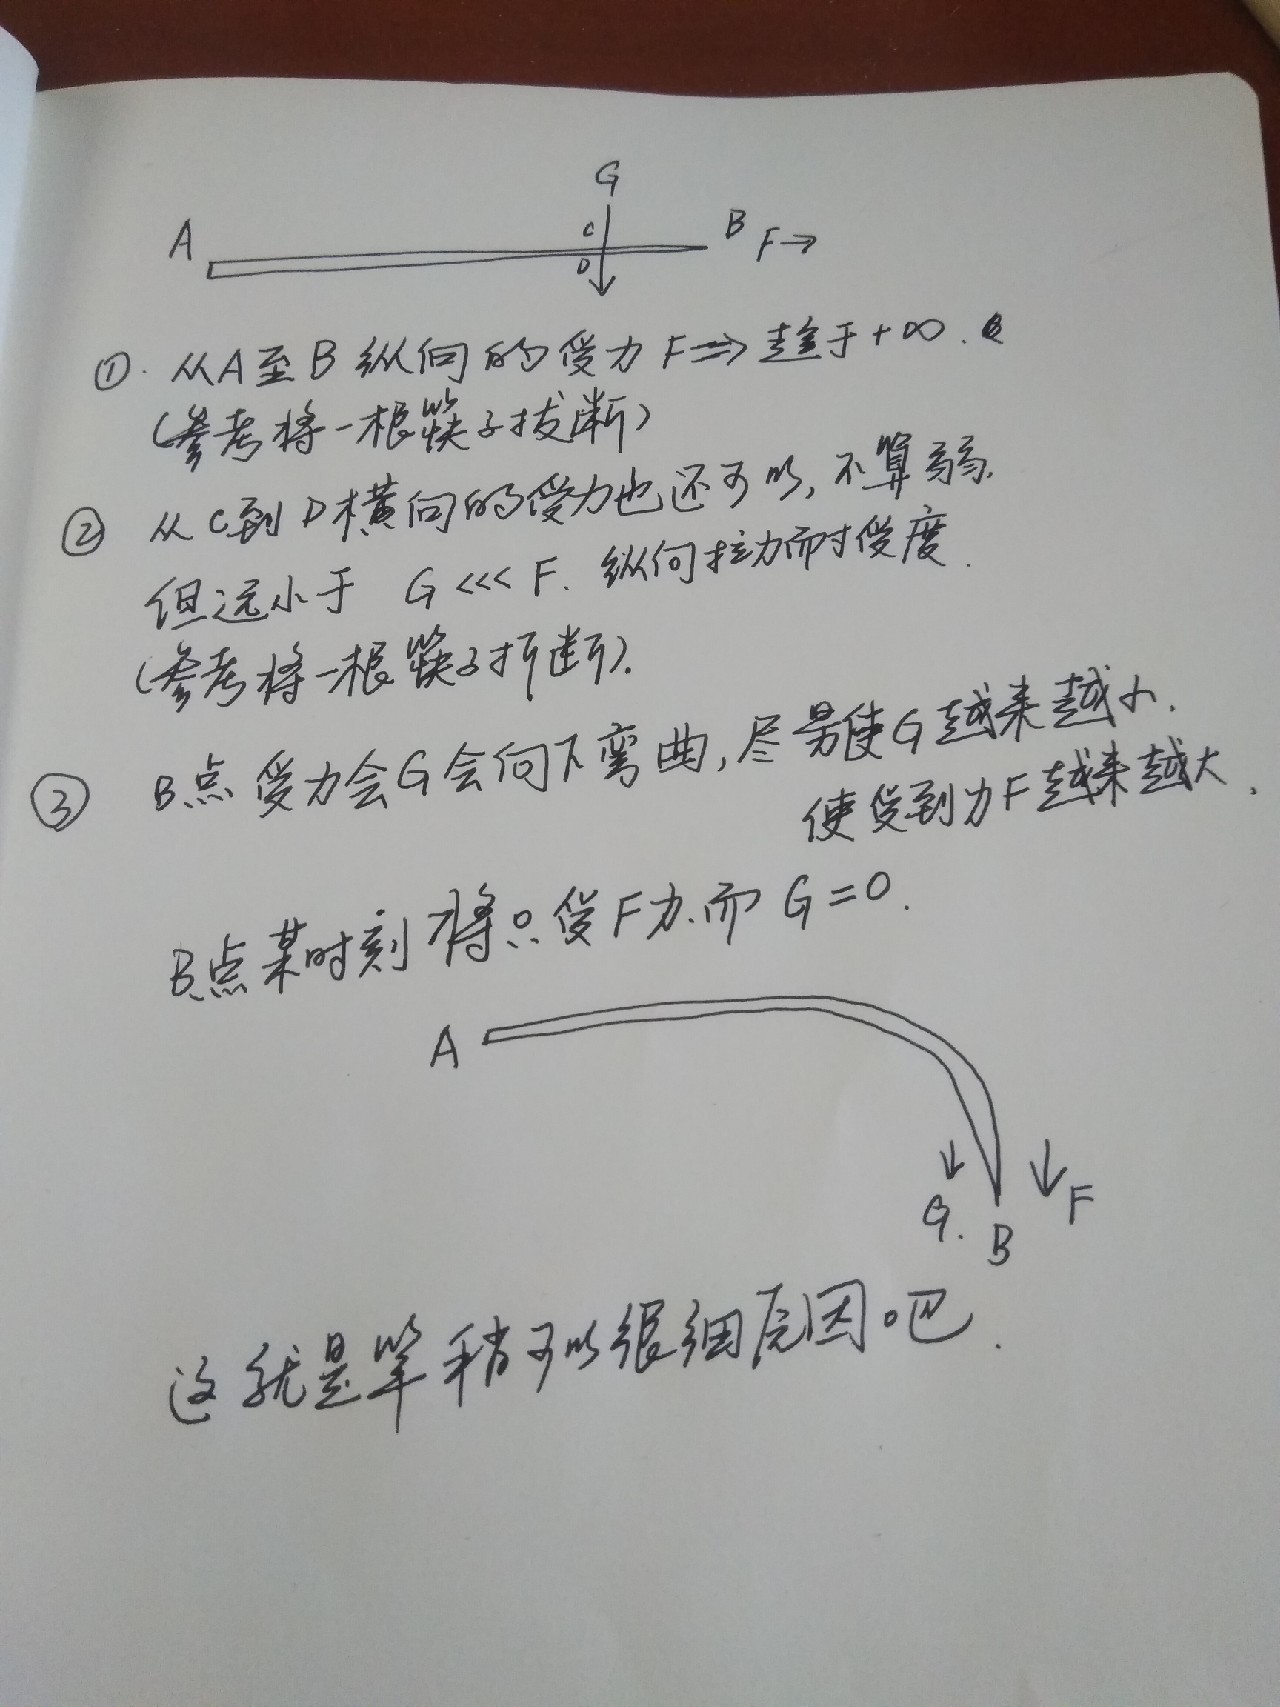 G
C
A
B F→
D
①. 从A至B纵向的受力F⇒趋于+∞.
(参考将一根筷子拔断)
② 从C到D横向的受力也还可以,不算弱.
但远小于 G<<<F. 纵向拉力而时受度.
(参考将一根筷子折断).
③ B点受力会G会向下弯曲,尽量使G越来越小.
使受到力F越来越大.
B点某时刻将只受F力.而G=0.
A
G. B F
这就是竿稍可以很细原因吧.